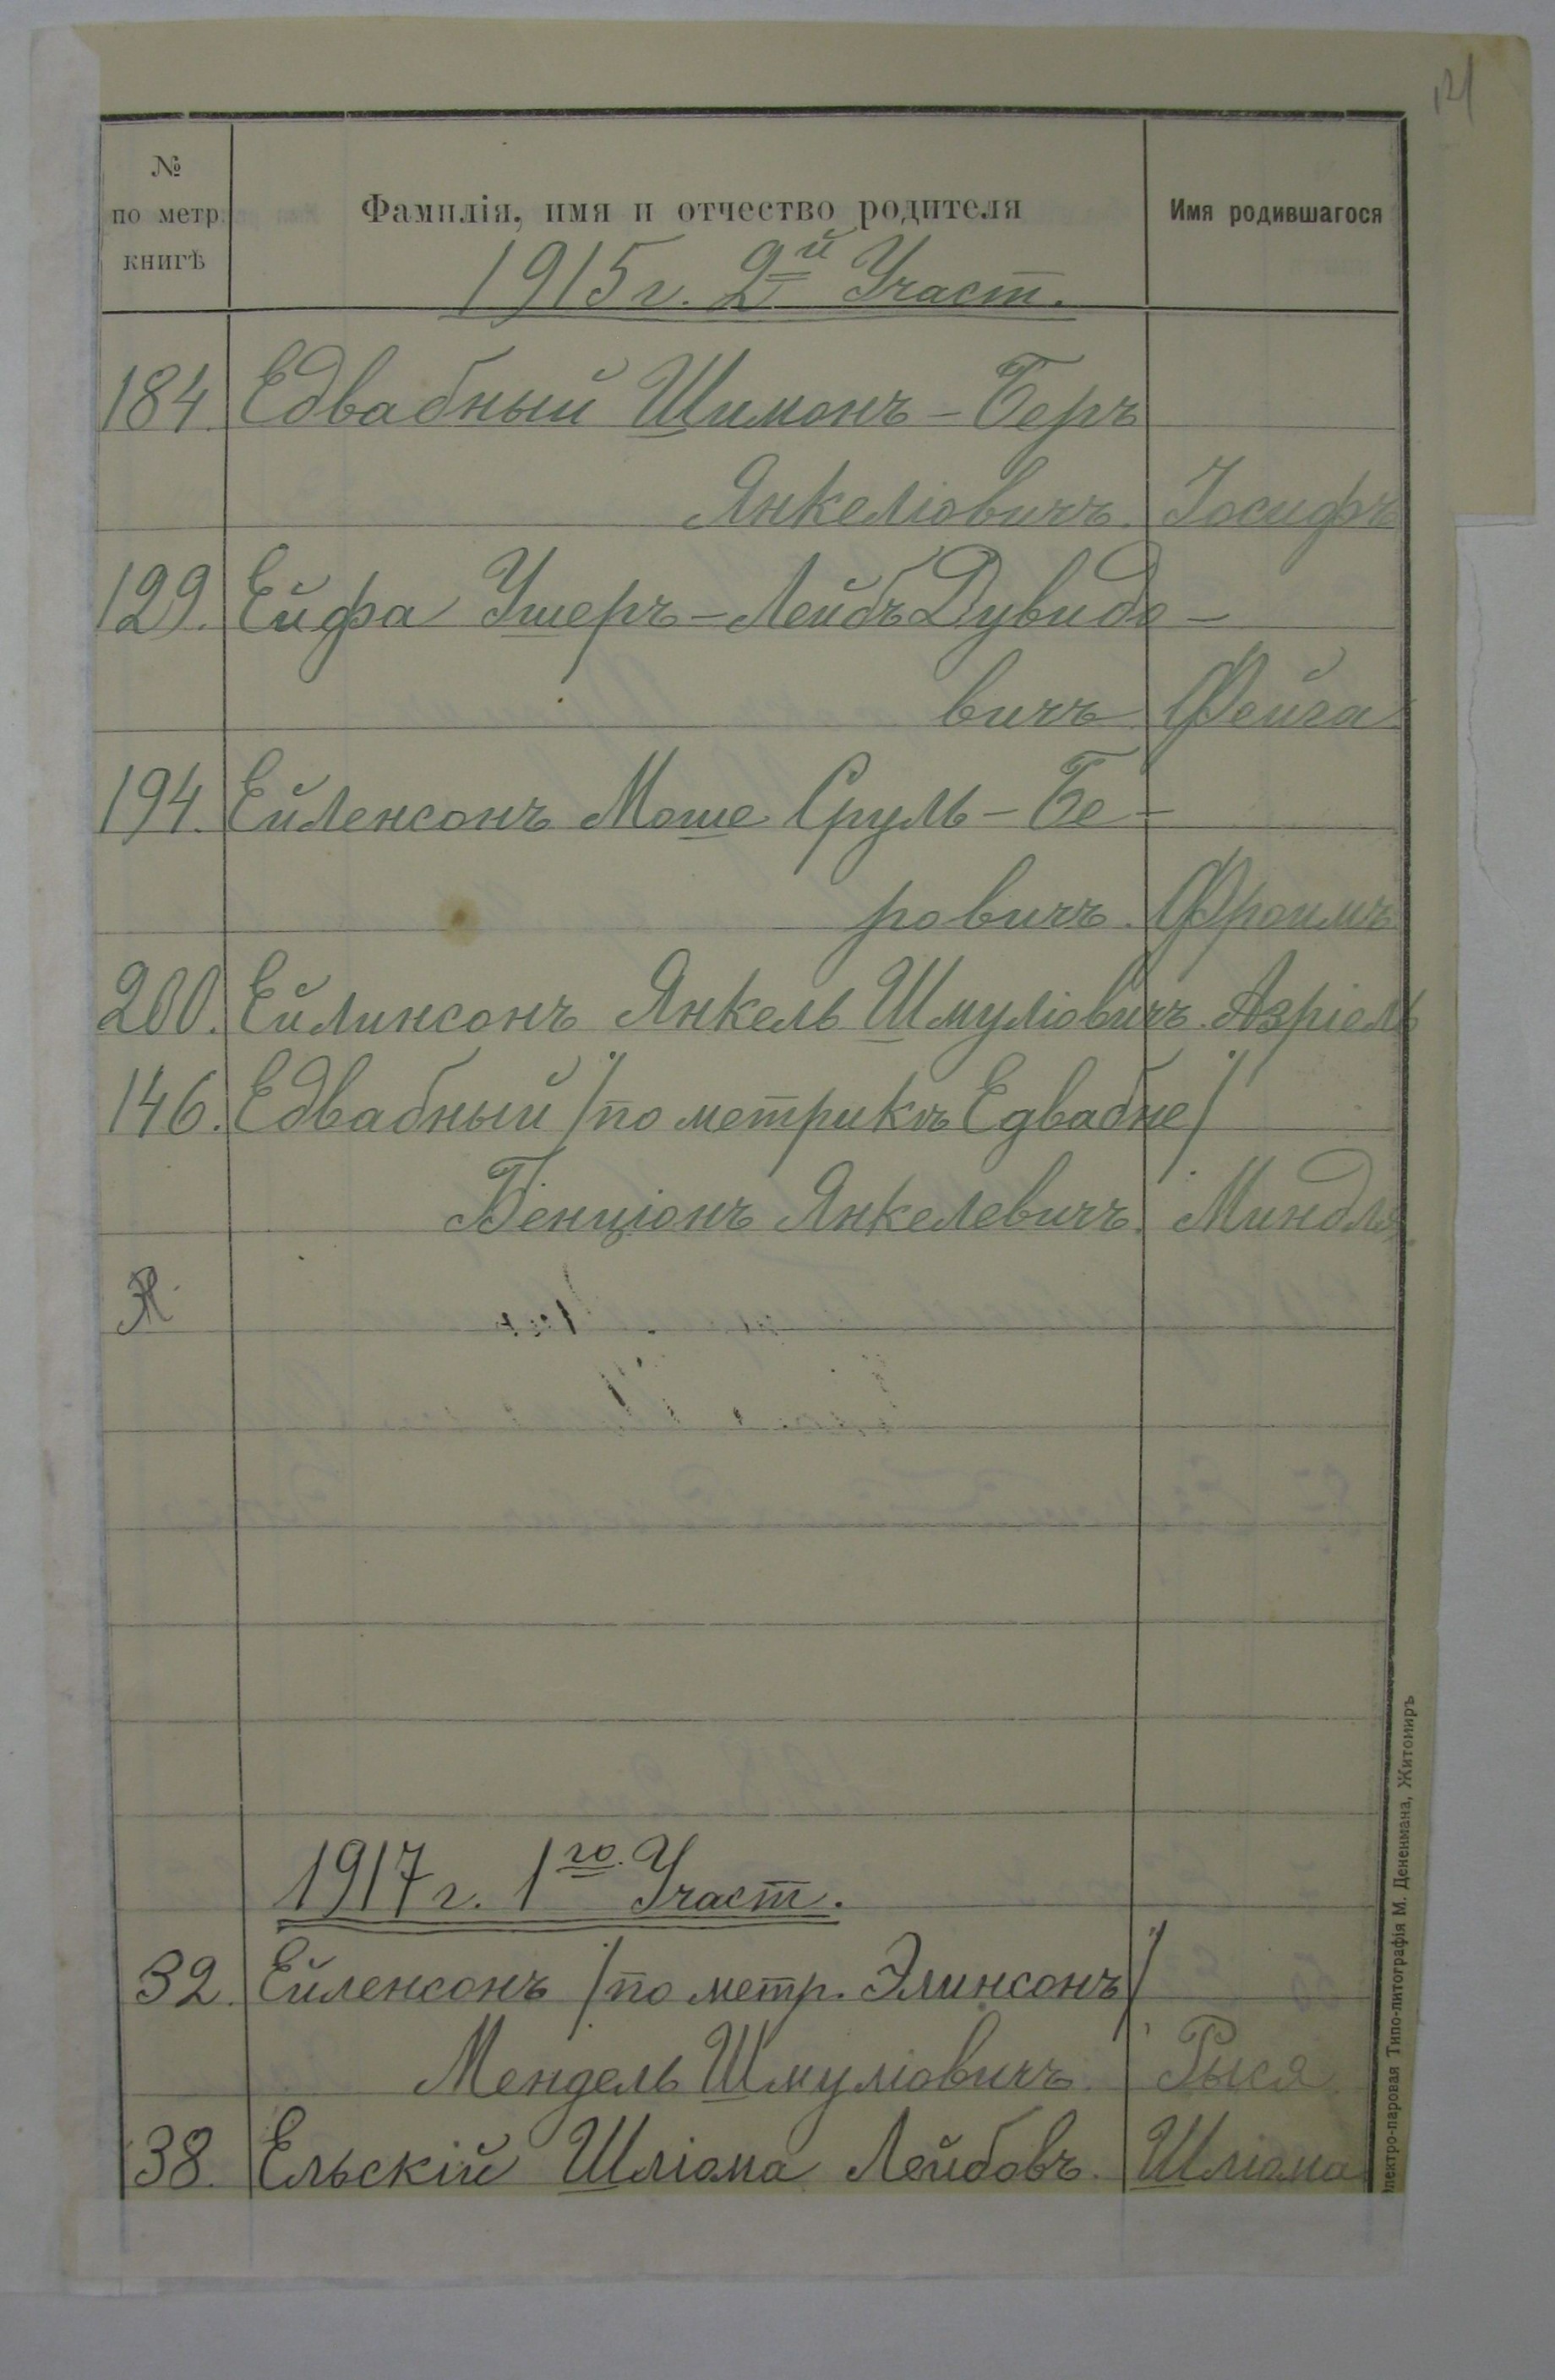 121
№ по метр. книгѣ
Фамилія, имя и отчество родителя
Имя родившагося
1915 г. 2й Участ.
184. Едвабный Шимонъ-Беръ
Янкеліовичъ. Іосифъ
129. Ейфа Ушеръ-Лейбъ Дувидо-
вичъ Фейга
194. Ейленсонъ Моше Сруль-Бе-
ровичъ. Фроимъ
200. Ейлинсонъ Янкель Шмуліовичъ. Азріель
146. Едвабный /по метрикѣ Едвабне/
Бенціонъ Янкелевичъ. Миндля
1917 г. 1го Участ.
32. Ейленсонъ /по метр. Элинсонъ/
Мендель Шмуліовичъ. Рыся
38. Ельскій Шліома Лейбовъ. Шліома
Электро-паровая Типо-литографія М. Дененмана, Житомиръ